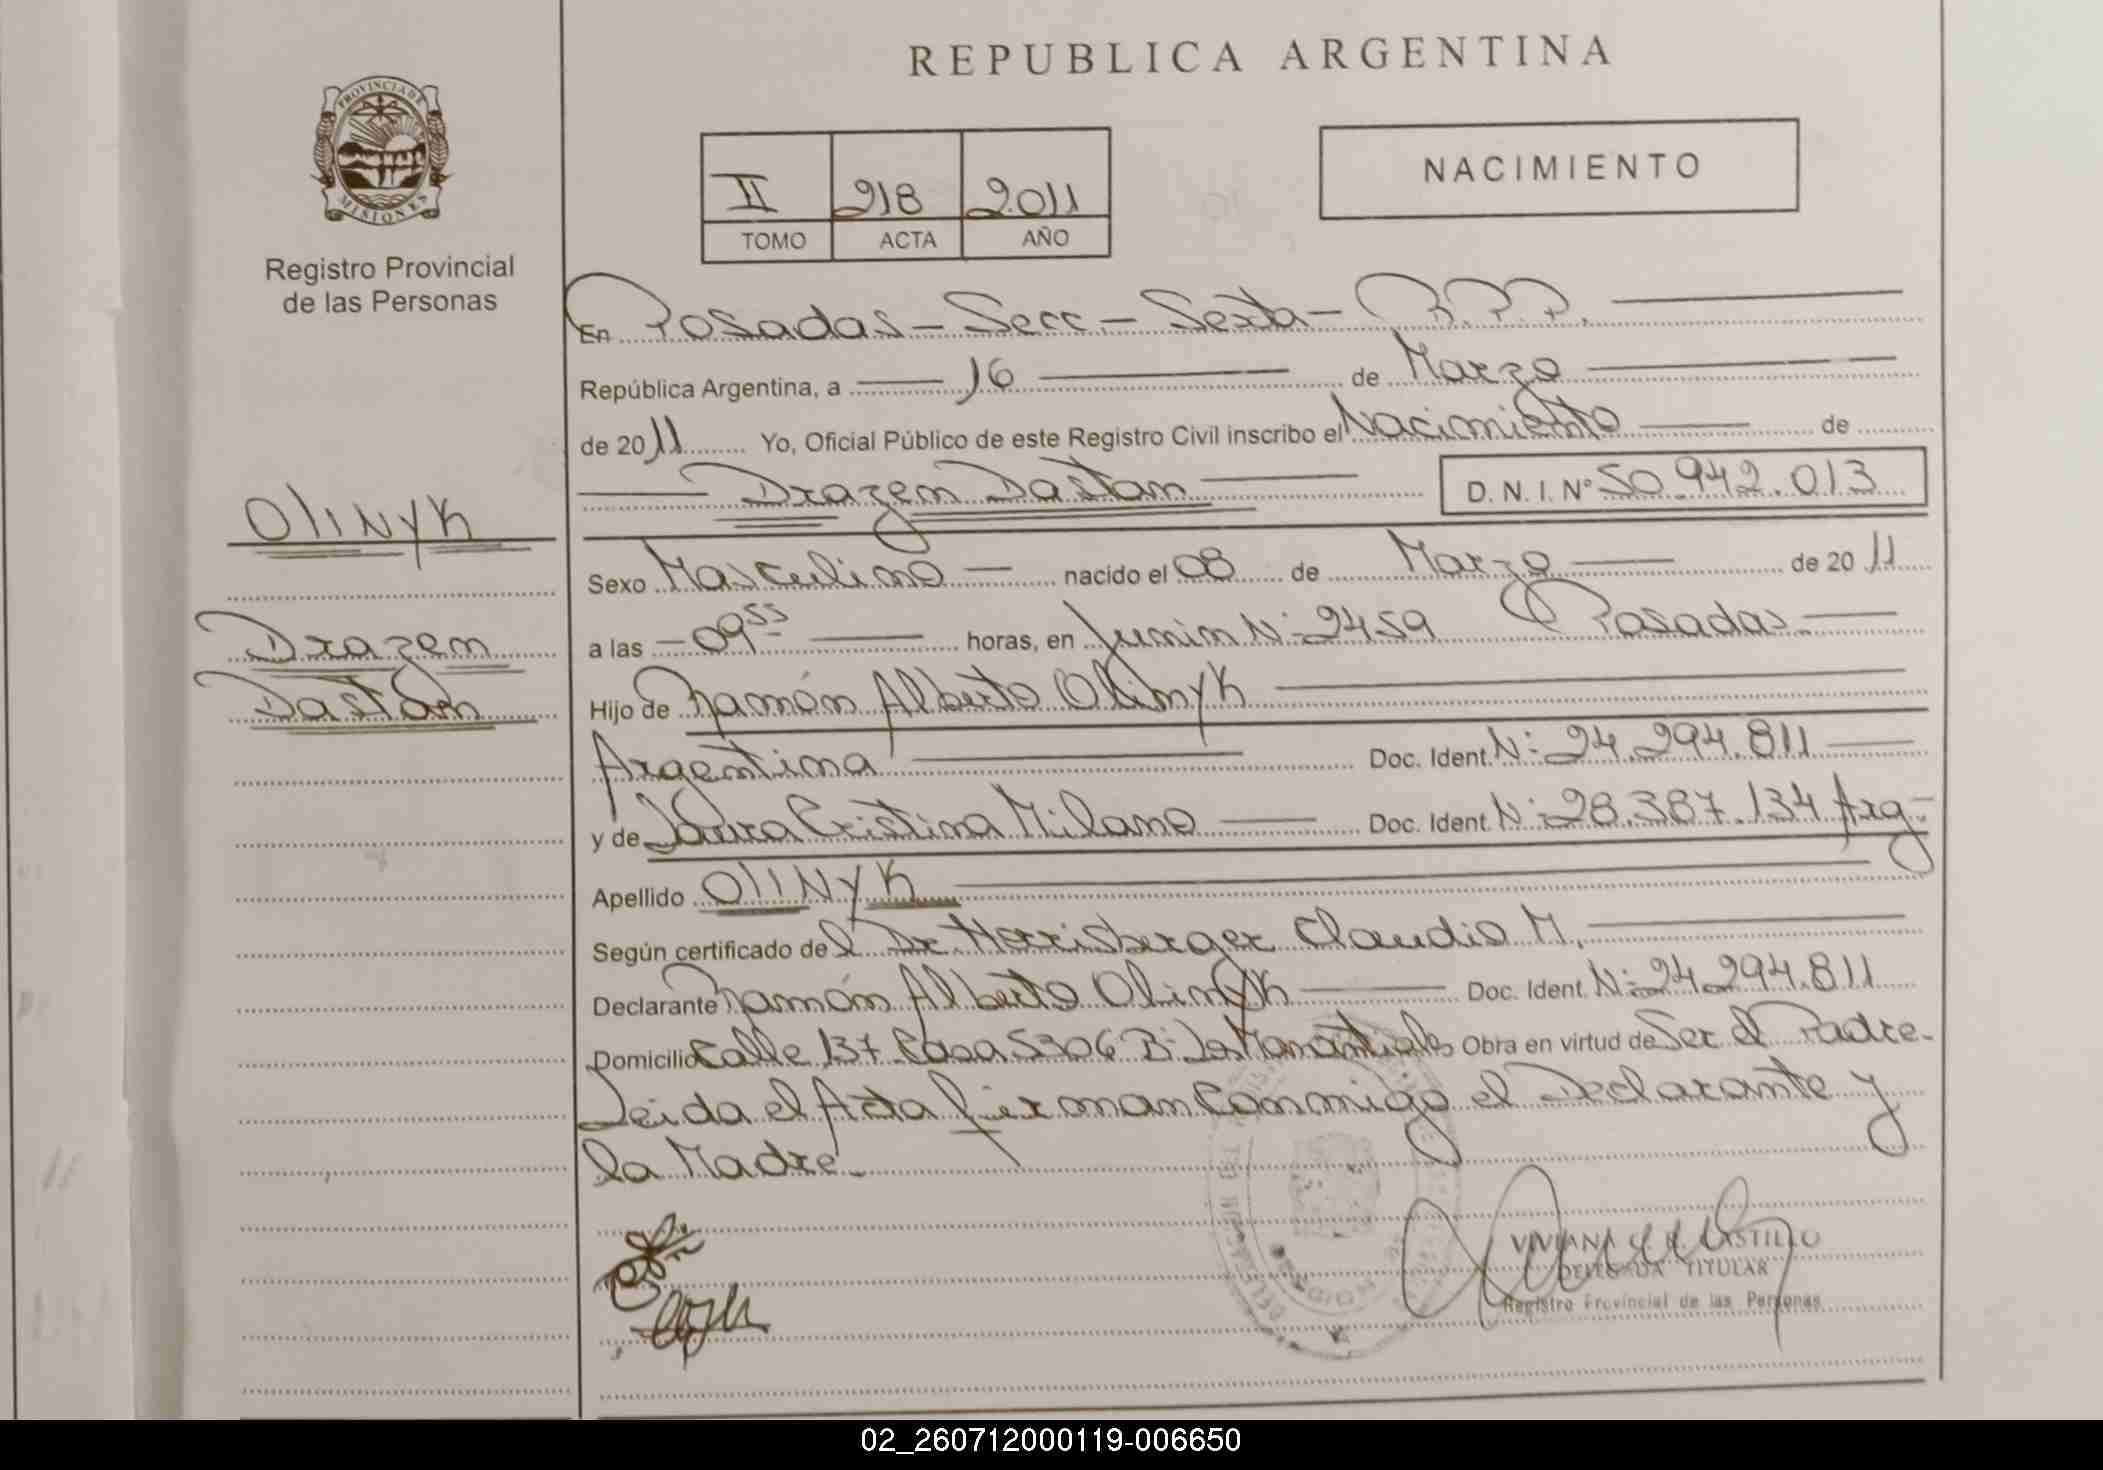 REPUBLICA ARGENTINA
PROVINCIA DE MISIONES
Registro Provincial
de las Personas
II 218 2011
TOMO ACTA AÑO
NACIMIENTO
En Posadas - Secc - Sexta - R.P.P.
República Argentina, a 16 de Marzo
de 2011 Yo, Oficial Público de este Registro Civil inscribo el Nacimiento de
Drazem Dastan D.N.I. Nº 50.942.013
OlINyK
Drazem
Dastan
Sexo Masculino nacido el 08 de Marzo de 2011
a las 09 55 horas, en Junin Nº 2459 Posadas
Hijo de Ramón Alberto Olinyk
Argentina Doc. Ident. Nº 24.294.811
y de Laura Cristina Milano Doc. Ident. Nº 28.387.134 Arg-
Apellido OlINyK
Según certificado del Dr. Horrisberger Claudio M.
Declarante Ramón Alberto Olinyk Doc. Ident. Nº 24.294.811
Domicilio Calle 137 Casa 5306 Bº Los Manantiales Obra en virtud de Ser el Padre.
Leida el Acta firman conmigo el Declarante y
la Madre.
VIVIANA CASTILLO
DELEGADA TITULAR
Registro Provincial de las Personas
02_260712000119-006650